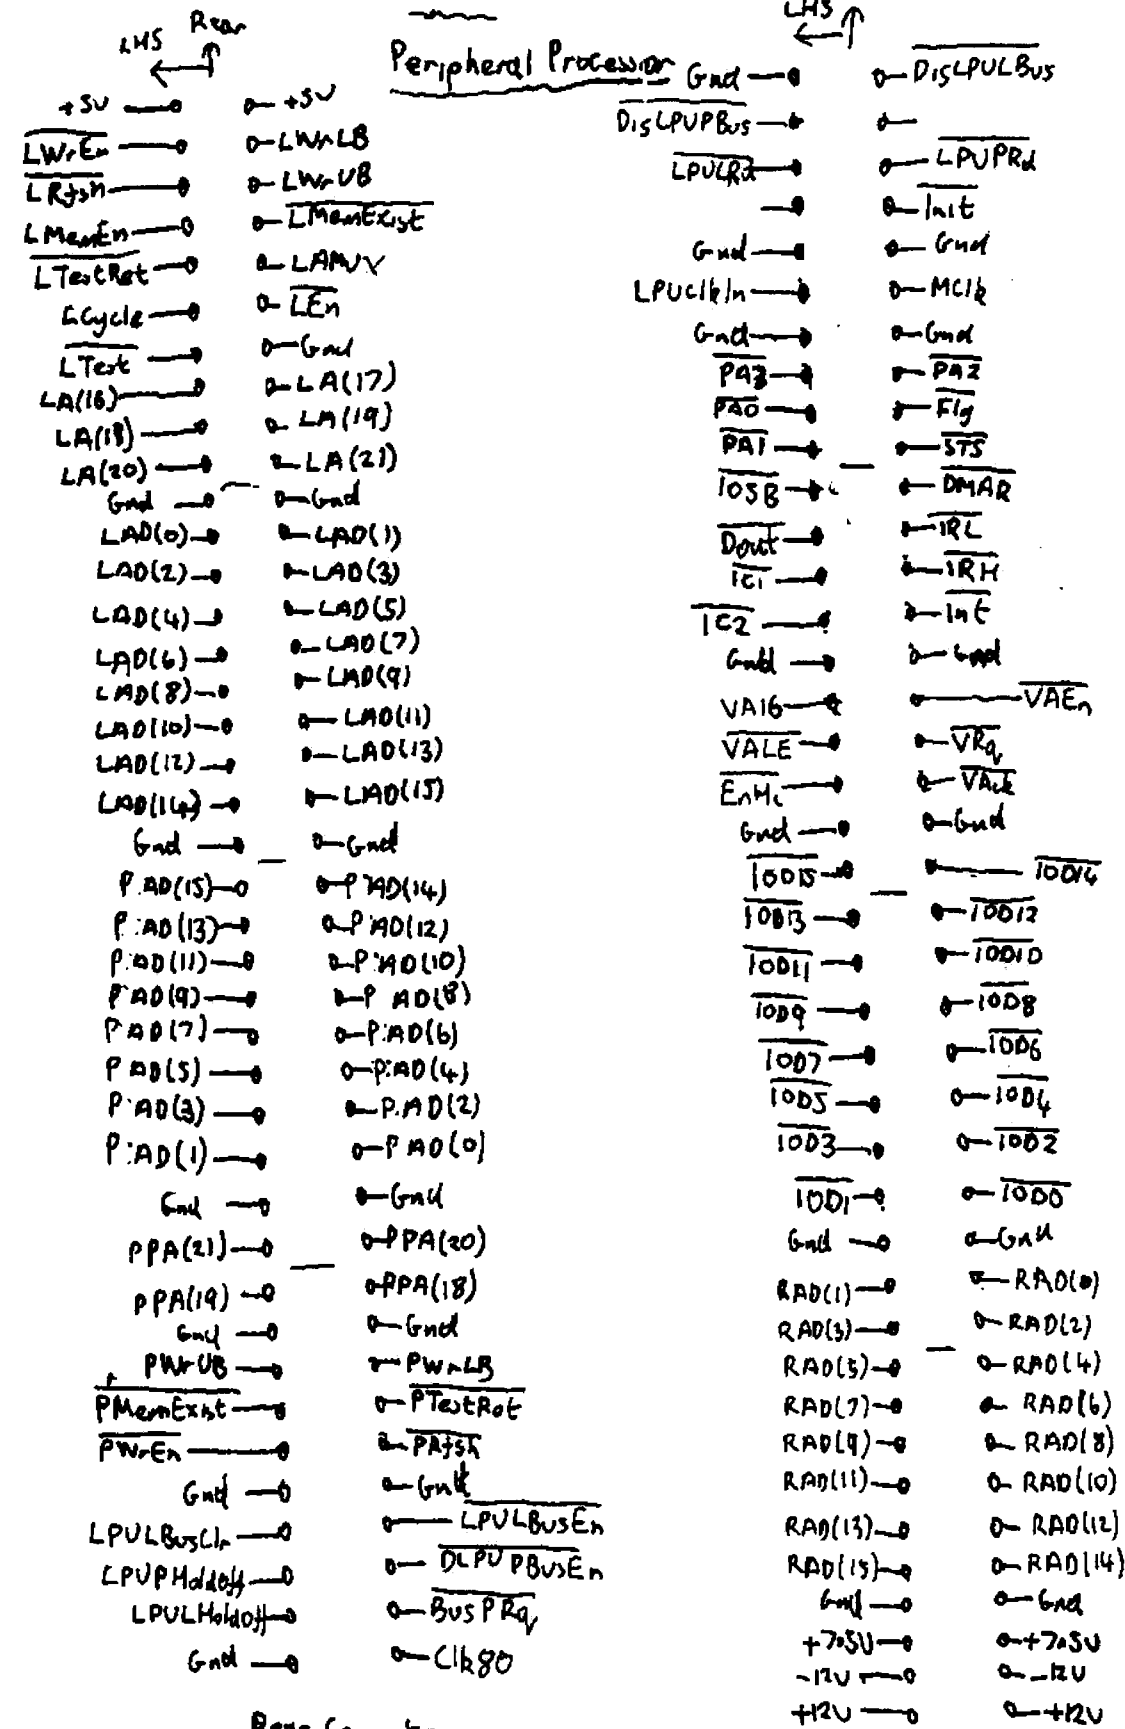 LHS Rear
Peripheral Processor
+5V +5V
LWrEn LWrLB
LRfsh LWrUB
LMemEn LMemExist
LTestRet LAMUX
LCycle LEn
LTest Gnd
LA(16) LA(17)
LA(18) LA(19)
LA(20) LA(21)
Gnd Gnd
LAD(0) LAD(1)
LAD(2) LAD(3)
LAD(4) LAD(5)
LAD(6) LAD(7)
LAD(8) LAD(9)
LAD(10) LAD(11)
LAD(12) LAD(13)
LAD(14) LAD(15)
Gnd Gnd
P.AD(15) P.AD(14)
P.AD(13) P.AD(12)
P.AD(11) P.AD(10)
P.AD(9) P.AD(8)
P.AD(7) P.AD(6)
P.AD(5) P.AD(4)
P.AD(3) P.AD(2)
P.AD(1) P.AD(0)
Gnd Gnd
PPA(21) PPA(20)
PPA(19) PPA(18)
Gnd Gnd
PWrUB PWrLB
PMemExist PTestRet
PWrEn PRfsh
Gnd Gnd
LPULBusClr LPULBusEn
LPUPHoldOff DLPUPBusEn
LPULHoldOff BusPRq
Gnd Clk80
LHS
Gnd DisLPULBus
DisLPUPBus
LPULRd LPUPRd
Init
Gnd Gnd
LPUClkIn MClk
Gnd Gnd
PA3 PA2
PA0 Flg
PA1 STS
IOSB DMAR
Dout IRL
IC1 IRH
IC2 Int
Gnd Gnd
VA16 VAEn
VALE VRq
EnHi VAck
Gnd Gnd
IOD15 IOD14
IOD13 IOD12
IOD11 IOD10
IOD9 IOD8
IOD7 IOD6
IOD5 IOD4
IOD3 IOD2
IOD1 IOD0
Gnd Gnd
RAD(1) RAD(0)
RAD(3) RAD(2)
RAD(5) RAD(4)
RAD(7) RAD(6)
RAD(9) RAD(8)
RAD(11) RAD(10)
RAD(13) RAD(12)
RAD(15) RAD(14)
Gnd Gnd
+7.5V +7.5V
-12V -12V
+12V +12V